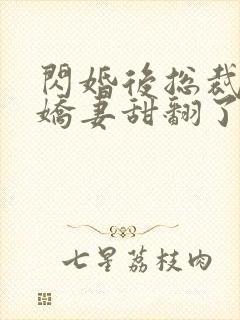 閃婚後總裁
嬌妻甜翻了
七星荔枝肉